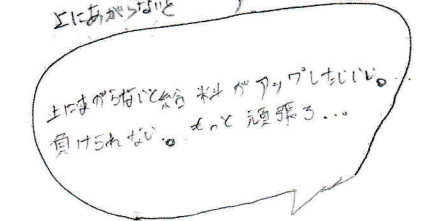 上にあがらないと
上にあがらないと給料がアップしないし。…
負けられない。もっと頑張ろ…